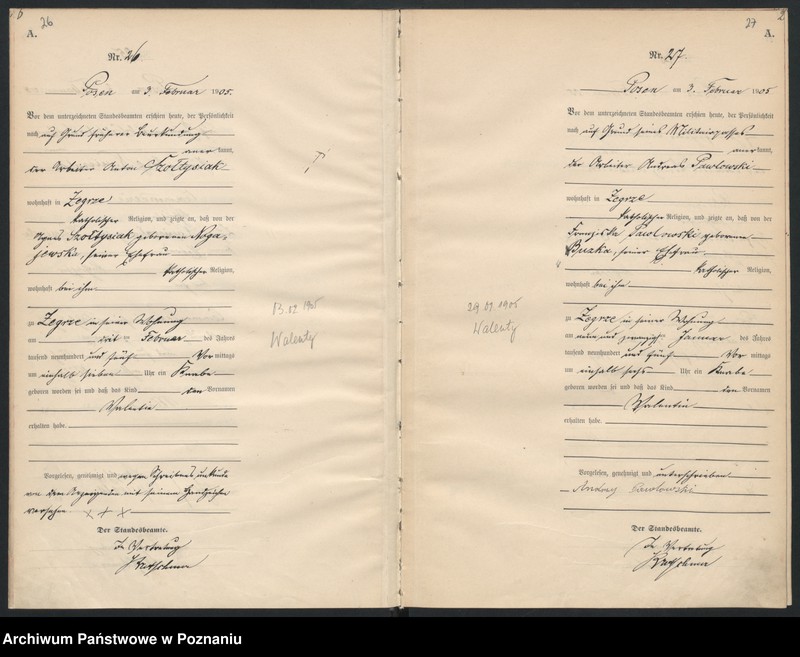 26
A.
Nr. 26
Posen am 3. Februar 1905.
Vor dem unterzeichneten Standesbeamten erschien heute, der Persönlichkeit
nach auf Grund früherer Beurkundung
anerkannt,
der Arbeiter Anton Szołtysiak
wohnhaft in Zegrze
katholischer Religion, und zeigte an, daß von der
Agnes Szołtysiak geborenen
seiner Ehefrau
katholischer Religion,
wohnhaft bei ihm
zu Zegrze in seiner Wohnung
am Februar des Jahres
tausend neunhundert und fünf Vormittags
um einhalb sieben Uhr ein Knabe
geboren worden sei und daß das Kind den Vornamen
Valentin
erhalten habe.
Vorgelesen, genehmigt und wegen Schreibens unkunde
von dem Anzeigenden mit seinem Handzeichen
versehen
+ + +
Der Standesbeamte.
In Vertretung
Walenty
27
A.
Nr. 27
Posen am 3. Februar 1905
Vor dem unterzeichneten Standesbeamten erschien heute, der Persönlichkeit
nach auf Grund seines Militärpasses
anerkannt,
der Arbeiter Andreas Pawlowski
wohnhaft in Zegrze
katholischer Religion, und zeigte an, daß von der
Franziska Pawlowski geborenen
seiner Ehefrau
katholischer Religion,
wohnhaft bei ihm
zu Zegrze in seiner Wohnung
am neun und zwanzigsten Januar des Jahres
tausend neunhundert und fünf Vormittags
um einhalb sechs Uhr ein Knabe
geboren worden sei und daß das Kind den Vornamen
Valentin
erhalten habe.
Vorgelesen, genehmigt und unterschrieben
Andrzej Pawlowski
Der Standesbeamte.
In Vertretung
Walenty
Archiwum Państwowe w Poznaniu